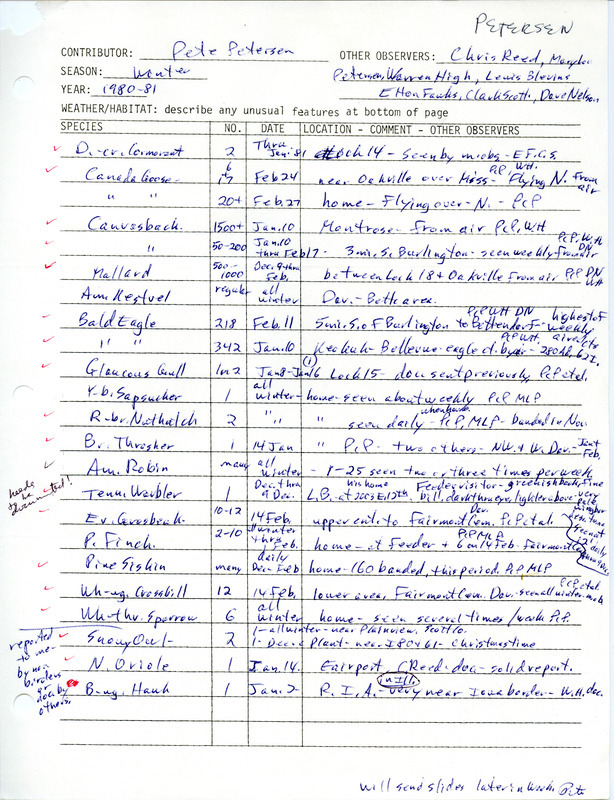 PETERSEN
CONTRIBUTOR: Pete Petersen OTHER OBSERVERS: Chris Reed, Marydon
SEASON: Winter Petersen, Warren High, Lewis Blevins
YEAR: 1980-81 Elton Fawks, Clark Scott, Dave Nelson
WEATHER/HABITAT: describe any unusual features at bottom of page
SPECIES NO. DATE LOCATION - COMMENT - OTHER OBSERVERS
D.-cr. Cormorant 2 Thru Jan. 81 Lock 14 - Seen by m.obs - E.F. C.S.
Canada Goose - 6 17 Feb 24 near Oakville over Miss - Flying N. from air PCP WH
" " 20+ Feb. 27 home - Flying over - N. - PCP
Canvasback 1500+ Jan. 10 Montrose - From air PCP, WH
" 50-200 Jan. 10 thru Feb 17 - 3 mi. S. Burlington - seen weekly from air PCP, WH DN
Mallard 500-1000 Dec. 9 thru Feb. between Lock 18 & Oakville from air PCP DN WH
Am. Kestrel regular all winter Dav. - Bett. area.
Bald Eagle 218 Feb. 11 5 mi. S. of Burlington to Bettendorf - highest of weekly air cts PCP WH DN
" " 342 Jan. 10 Keokuk - Bellevue - eagle ct. by air - 280 Ad. 62 I. PCP WH.
Glaucous Gull 1 or 2 Jan 8 - Jan 16 (1) Lock 15 - doc. sent previously PCP et al.
Y-b. Sapsucker 1 all winter - home - seen about weekly PCP MLP
R-br. Nuthatch 2 " " " seen daily - PCP, MLP - banded in Nov.
Br. Thrasher 1 14 Jan " PCP - two others - NW. & W. Dav. - Jan & Feb.
Am. Robin many all winter - 1-25 seen two or three times per week
needs to be documented!
Tenn. Warbler 1 Dec. thru 9 Dec. L.B. at 2003 E. 12th Feeder visitor - greenish back, fine bill, dark thru eye, lighter above - very pale
Ev. Grosbeak 10-12 14 Feb. upper cent. to Fairmont Cem. Dav. PCP et al.
P. Finch 2-10 all winter thru Feb. home - at feeder + 6 on 14 Feb. Fairmont PCP MLP
Pine Siskin many daily Dec - Feb home - 160 banded, this period. PCP MLP
Wh-wg. Crossbill 12 14 Feb. lower area, Fairmont Cem. Dav. - seen all winter - m.ob PCP et al
Wh-thr. Sparrow 6 all winter home - seen several times / week PCP.
reported to me by non birders or doc. by others.
Snowy Owl - 2 1 - all winter - near Plainview, Scott Co.
1 - Deere Plant - near I80 & 61 - Christmas time
N. Oriole 1 Jan. 14. Fairport CReed - doc - solid report.
B-wg. Hawk 1 Jan. 2 R.I.A. - very near Iowa border - W.H. doc.
in Ill.
will send slides later in week. Pete